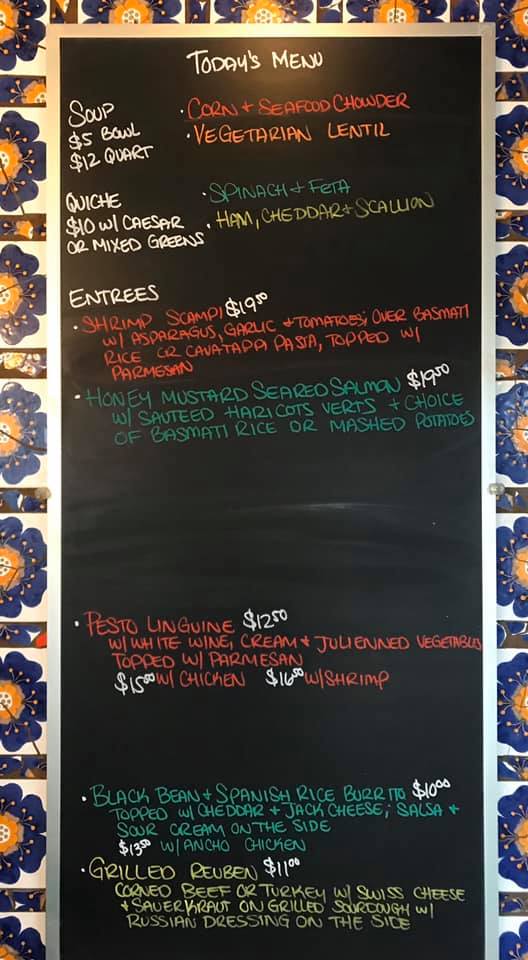 TODAY'S MENU
SOUP
$5 BOWL
$12 QUART
• CORN + SEAFOOD CHOWDER
• VEGETARIAN LENTIL
QUICHE
$10 W/ CAESAR
OR MIXED GREENS
• SPINACH + FETA
• HAM, CHEDDAR + SCALLION
ENTREES
• SHRIMP SCAMPI $19.50
W/ ASPARAGUS, GARLIC + TOMATOES; OVER BASMATI
RICE OR CAVATAPPI PASTA, TOPPED W/
PARMESAN
• HONEY MUSTARD SEARED SALMON $19.50
W/ SAUTEED HARICOTS VERTS + CHOICE
OF BASMATI RICE OR MASHED POTATOES
• PESTO LINGUINE $12.50
W/ WHITE WINE, CREAM + JULIENNED VEGETABLES
TOPPED W/ PARMESAN
$15.00 W/ CHICKEN $16.50 W/ SHRIMP
• BLACK BEAN + SPANISH RICE BURRITO $10.00
TOPPED W/ CHEDDAR + JACK CHEESE; SALSA +
SOUR CREAM ON THE SIDE
$13.50 W/ ANCHO CHICKEN
• GRILLED REUBEN $11.00
CORNED BEEF OR TURKEY W/ SWISS CHEESE
+ SAUERKRAUT ON GRILLED SOURDOUGH W/
RUSSIAN DRESSING ON THE SIDE